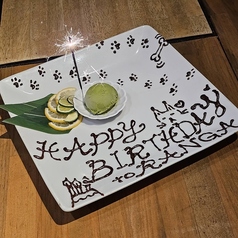 HAPPY
BIRTHDAY
to RANGA